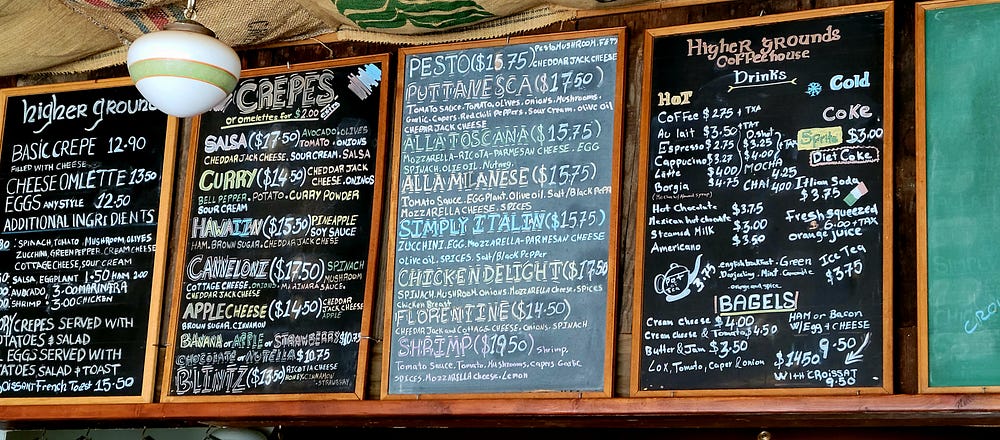 higher ground
BASIC CREPE 12.90
FILLED WITH CHEESE
CHEESE OMLETTE 13.50
EGGS ANY STYLE 12.50
ADDITIONAL INGRIDIENTS
SPINACH, TOMATO. MUSHROOM, OLIVES
ZUCCHINI, GREEN PEPPER. CREAM CHEESE
COTTAGE CHEESE, SOUR CREAM
SALSA, EGGPLANT 1.50 HAM 2.00
AVOCADO, 3.00 MARINARA
SHRIMP: 3.00 CHICKEN
CREPES SERVED WITH
& SALAD
EGGS SERVED WITH
SALAD + TOAST
French Toast 15.50
CREPES
or omelettes for $2.00
SALSA ($17.50) AVOCADO. OLIVES
TOMATO. ONIONS
CHEDDAR JACK CHEESE. SOUR CREAM. SALSA
CURRY ($14.50) CHEDDAR JACK
CHEESE. ONIONS
BELL PEPPER. POTATO. CURRY POWDER
SOUR CREAM
HAWAIIN ($15.50) PINEAPPLE
SOY SAUCE
HAM. BROWN SUGAR. CHEDDAR JACK CHESE
CANNELONI ($17.50) SPINACH
MUSHROOM
COTTAGE CHEESE. ONIONS. MARINARA SAUCE.
CHEDDAR JACK CHEESE
APPLE CHEESE ($14.50) CHEDDAR
JACK CHEESE
APPLE
BROWN SUGAR. CINNAMON
BANANA or APPLE or STRAWBERRY $10.75
CHOCOLATE or NUTELLA $10.75
BLINTZ ($13.50) RICOTTA CHEESE
HONEY. CINNAMON
- STRAWBERRY
PESTO ($15.75) PESTO MUSHROOM. FETA
CHEDDAR JACK CHEESE
PUTTANESCA ($17.50)
Tomato Sauce. Tomato. olives. Onions. Mushrooms.
Garlic. Capers. Red chili Peppers. Sour Cream. olive oil
CHEDDAR JACK CHEESE
ALLA TOSCANA ($15.75)
MOZZARELLA-RICOTA-PARMESAN CHEESE. EGG
SPINACH. OLIVE OIL. Nutmeg.
ALLA MILANESE ($15.75)
Tomato Sauce. EGG Plant. Olive oil. Salt/Black Pepper
MOZZARELLA CHEESE. SPICES
SIMPLY ITALIN ($15.75)
ZUCCHINI. EGG. MOZZARELLA-PARMESAN CHEESE
Olive oil. SPICES. Salt/Black PePPer
CHICKEN DELIGHT ($17.50
SPINACH. MUSHROOM. Onions. MOZZARELLA Cheese. Spices
Chicken Breast
FLORENTINE ($14.50)
CHEDDAR Jack and COTTAGE CHEESE. Onions. SPINACH
SHRIMP ($19.50) Shrimp.
Tomato Sauce. Tomato, Mushrooms, Capers Garlic
SPICES. MOZZARELLA Cheese. Lemon
Higher grounds
Coffeehouse
Drinks
HOT
Cold
Coffee $2.75 + TXA
Au lait $3.50 + TAX
Espresso $2.75 $3.25
Cappuccino $3.27 $4.00
Latte $4.00 MOCHA 4.25
Borgia $4.75 CHAI 4.00
Hot Chocolate $3.75
Mexican hot chocolate $3.00
Steamed Milk $3.50
Americano
english breakfast. Green
Darjeeling. Mint. Camomile
orange and spice
CoKe
Sprite $3.00
Diet Coke
Itlian Soda
$3.75
Fresh squeezed
$6.00 + TAX
orange juice
Ice Tea
$3.75
BAGELS
Cream cheese $4.00
Cream cheese & Tomato $4.50
Butter & Jam $3.50
Lox, Tomato, Caper & onion $14.50
HAM or Bacon
W/Egg + CHEESE
9.50
WITH CROISSAT
9.50